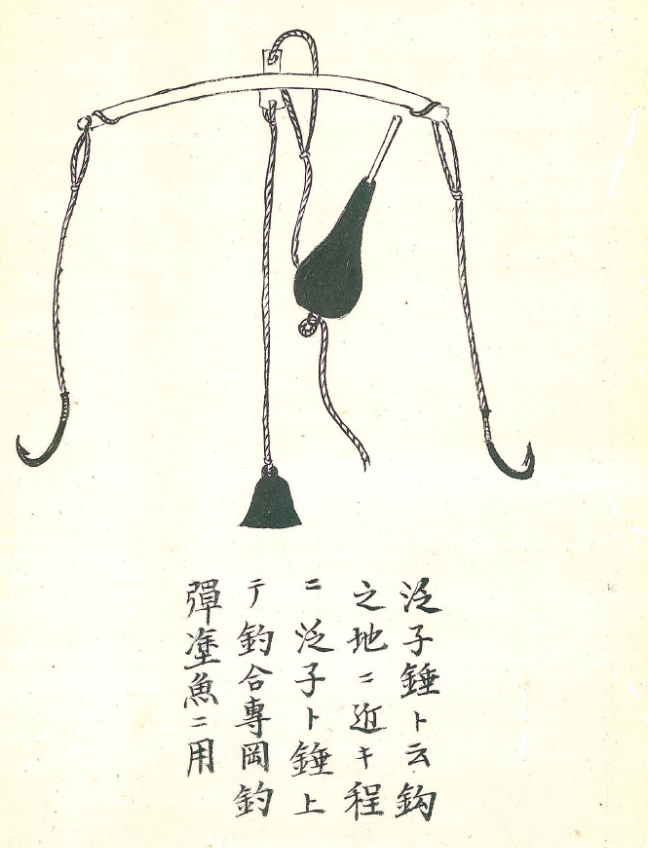 泛子錘ト云鈎
之地ニ近キ程
ニ泛子ト錘上
テ釣合專岡釣
彈塗魚ニ用